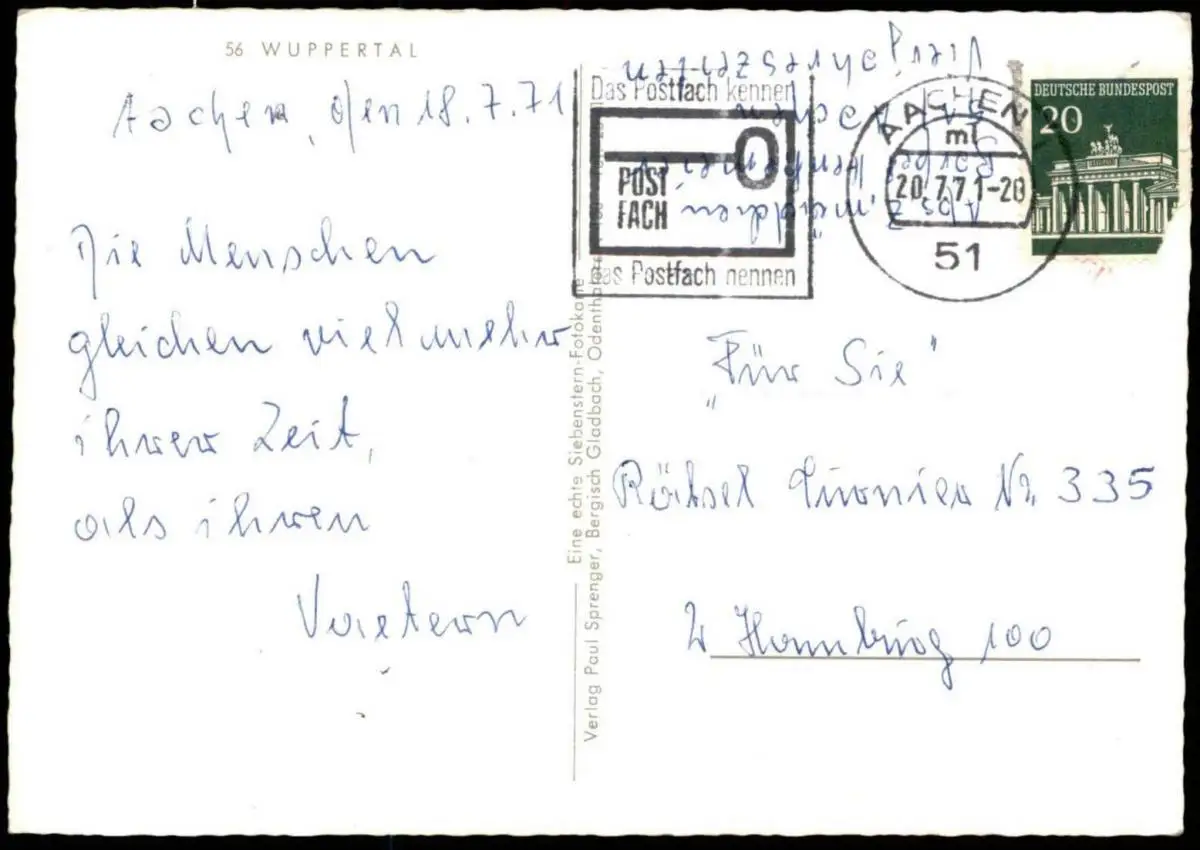 56 WUPPERTAL
Aachen, den 18.7.71
Die Menschen
gleichen vielmehr
ihrer Zeit,
als ihren
Vaetern
Eine echte Siebenstern-Fotokarte
Verlag Paul Sprenger, Bergisch Gladbach, Odenthaler
Das Postfach kennen
POST
FACH
Das Postfach nennen
AACHEN 1
ml
20.7.71-20
51
DEUTSCHE BUNDESPOST
20
Abs.
51 Aachen
Vierjahreszeiten
„Für Sie"
Rätsel Turnier Nr. 335
2 Hamburg 100